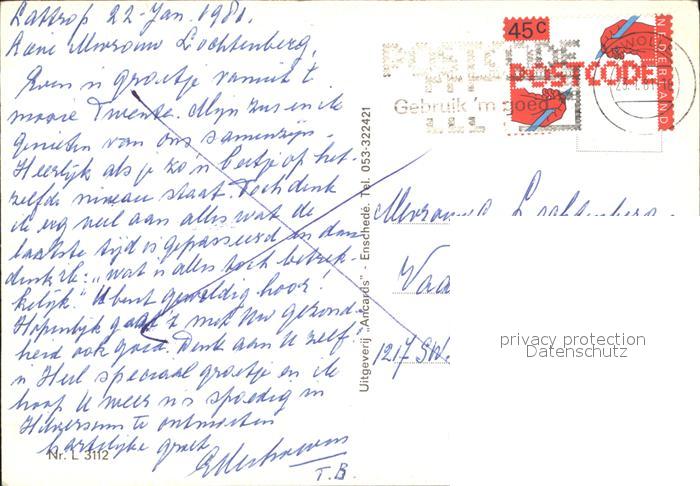 Lattrop 22-Jan. 1981.
Lieve Mevrouw Lochtenberg,
Even 'n groetje vanuit 't
mooie Twente. Mijn zus en ik
genieten van ons samenzijn.
Heerlijk als je zo'n beetje op het
zelfde niveau staat. Toch denk
ik erg veel aan alles wat de
laatste tijd is gepasseerd en dan
denk ik: "wat is alles toch betrek-
kelijk." U bent geweldig hoor!
Hopenlijk gaat 't met Uw gezond-
heid ook goed. Denk aan U zelf!
'n Heel speciaal groetje en ik
hoop U weer us spoedig in
Hilversum te ontmoeten
hartelijke groet
T.B.
Nr. L 3112
Uitgeverij "Ancards" - Enschedé. Tel. 053-322421
POSTCODE
Gebruik 'm goed
45c
POSTCODE
NEDERLAND
Mevrouw Lochtenberg
Vaa
1217 SW.
privacy protection
Datenschutz